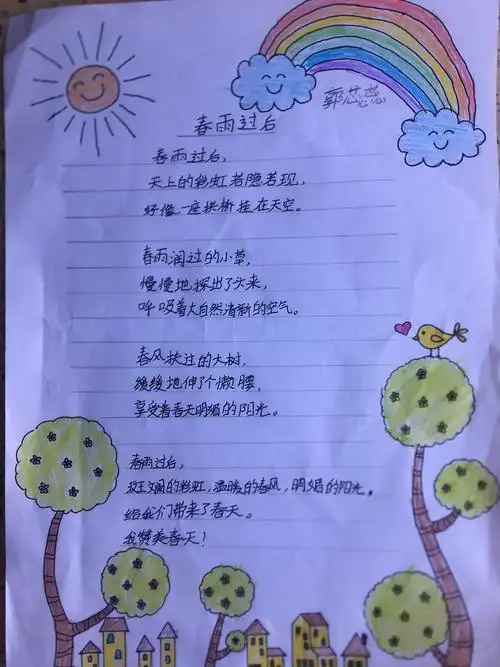 郭芯蕊
春雨过后
春雨过后，
天上的彩虹若隐若现，
好像一座拱桥挂在天空。
春雨润过的小草，
慢慢地探出了头来，
呼吸着大自然清新的空气。
春风扶过的大树，
缓缓地伸了个懒腰，
享受着春天明媚的阳光。
春雨过后，
斑斓的彩虹，温暖的春风，明媚的阳光。
给我们带来了春天。
我赞美春天！